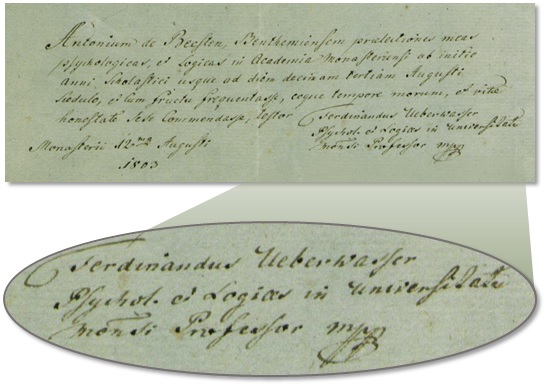 Antonium de Beesten, Benthemiensem prælectiones meas
psychologicas, et Logicas in Academia Monasteriensi ab initio
anni Scholastici usque ad diem decimam tertiam Augusti
Sedulo, et cum fructu frequentasse, eoque tempore morum, et vitæ
honestate Sese Commendasse, testor
Ferdinandus Ueberwasser
Psychol. et Logices in universitate
Monsti Professor mpp
Monasterii 12ma Augusti
1803
Ferdinandus Ueberwasser
Psychol. et Logices in universitate
Monsti Professor mpp